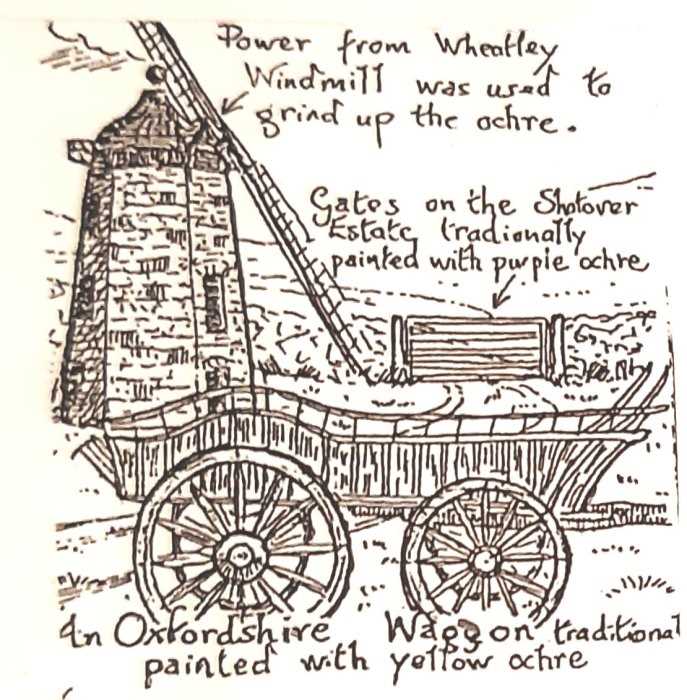 Power from Wheatley
Windmill was used to
grind up the ochre.
Gates on the Shotover
Estate tradionally
painted with purple ochre
An Oxfordshire Waggon traditional
painted with yellow ochre